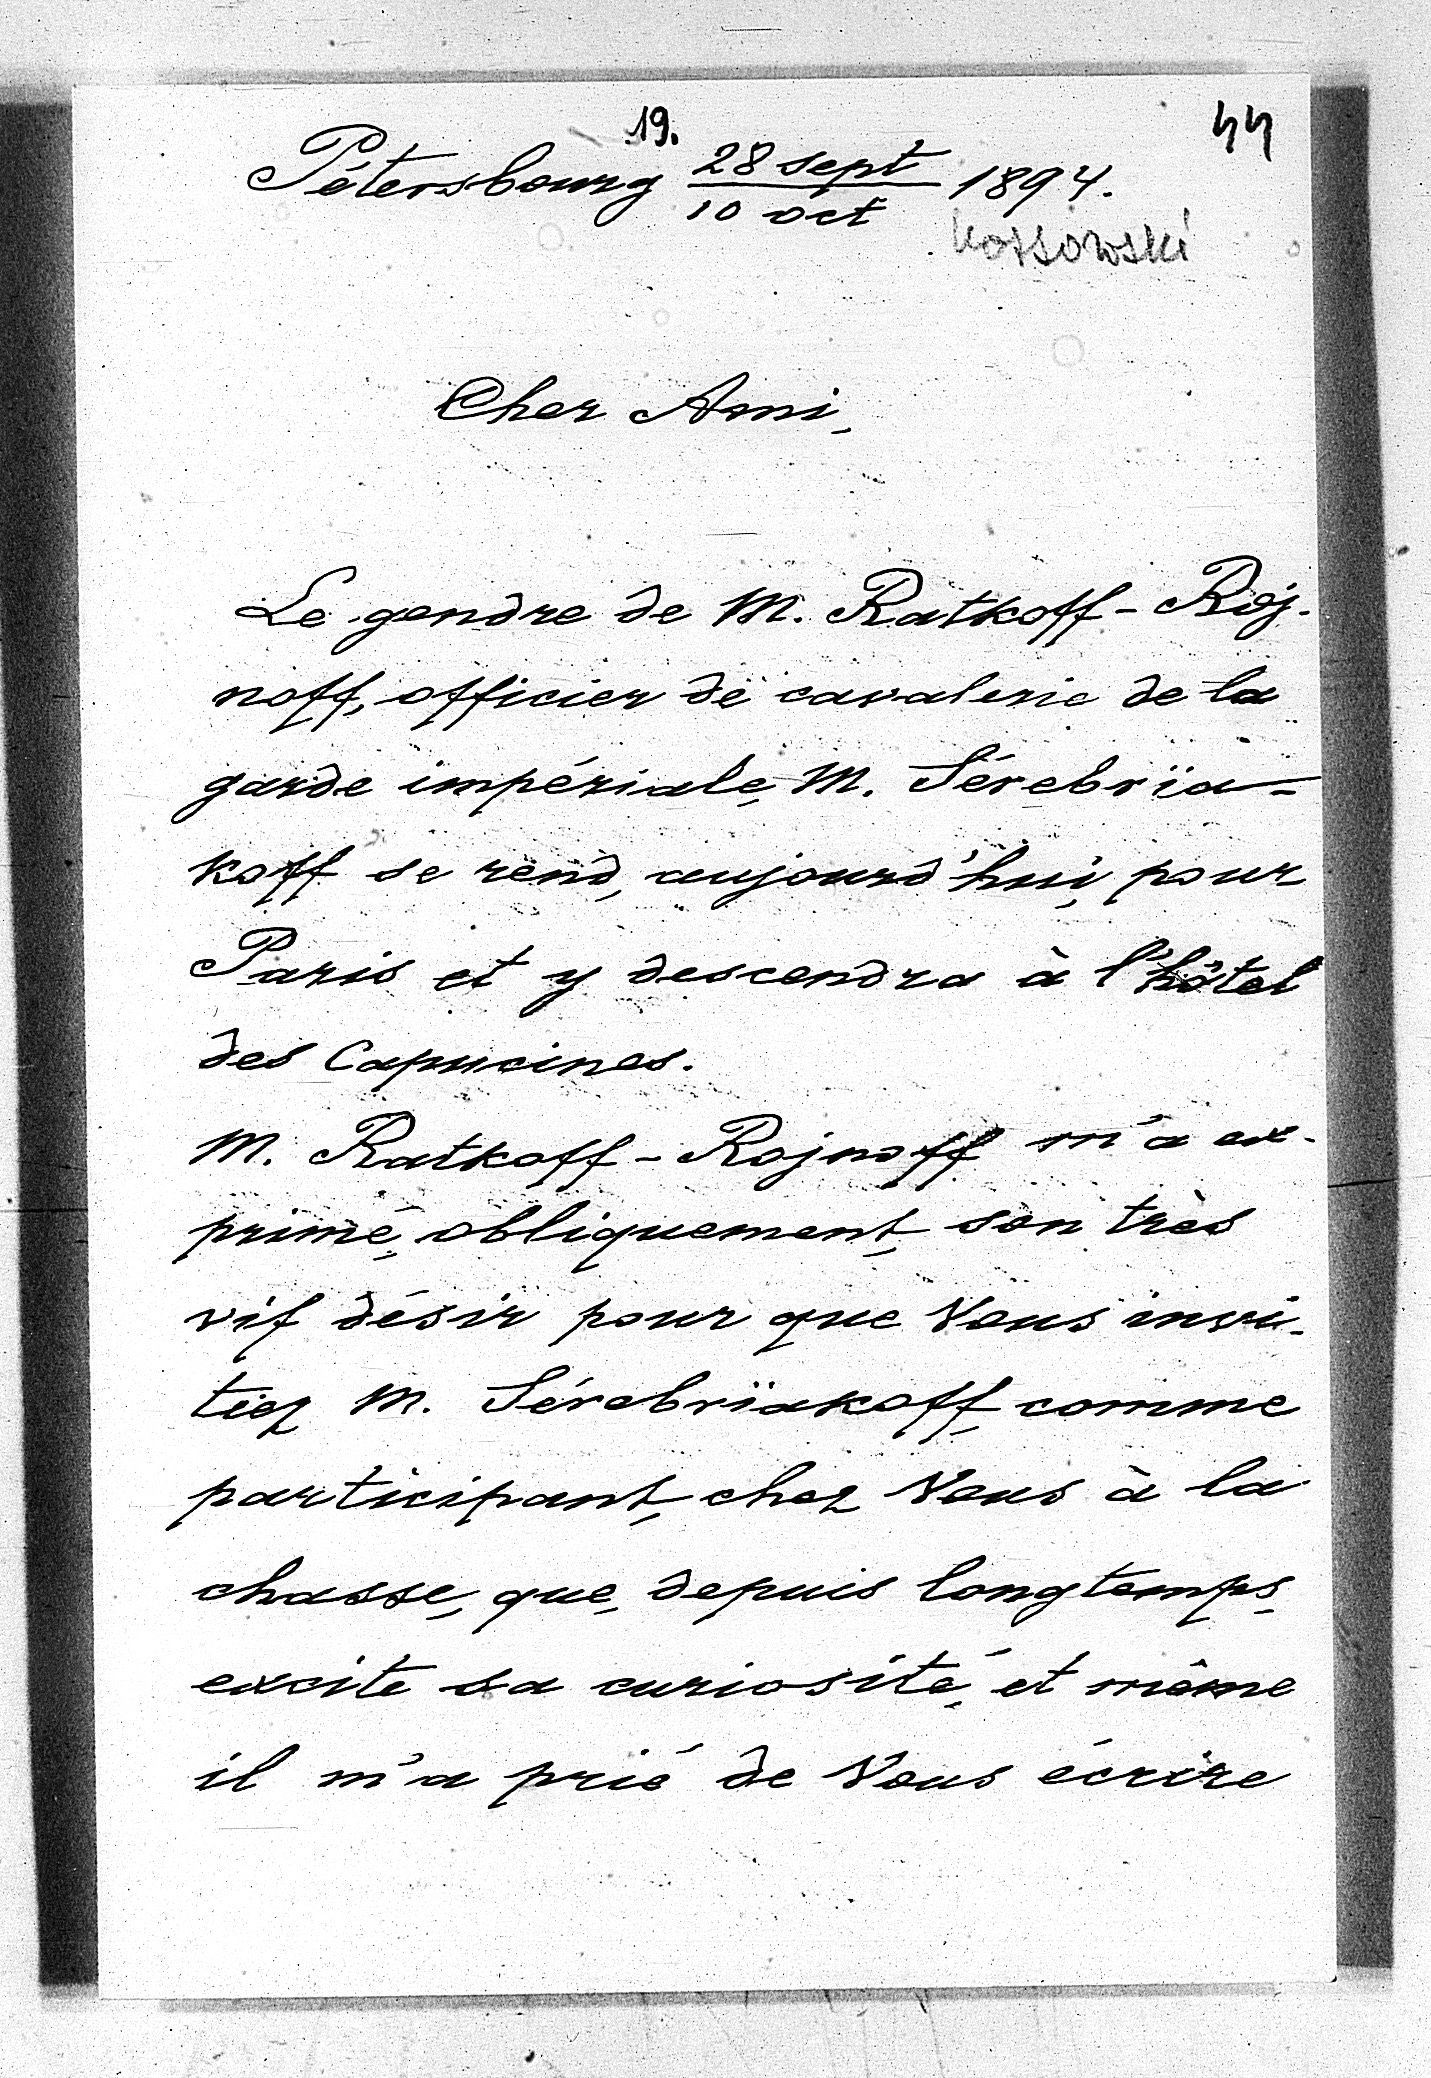 19.
44
Pétersbourg 28 sept / 10 oct 1894.
Kossowski
Cher Ami,
Le gendre de M. Ratkoff-Roj-
noff, officier de cavalerie de la
garde impériale, M. Sérebria-
koff se rend, aujourd'hui, pour
Paris et y descendra à l'hôtel
des Capucines.
M. Ratkoff-Rojnoff m'a ex-
primé, obliquement, son très
vif désir pour que Vous invi-
tiez M. Sérebriïakoff, comme
participant, chez Vous à la
chasse, que, depuis longtemps,
excite sa curiosité, et même
il m'a prié de Vous écrire